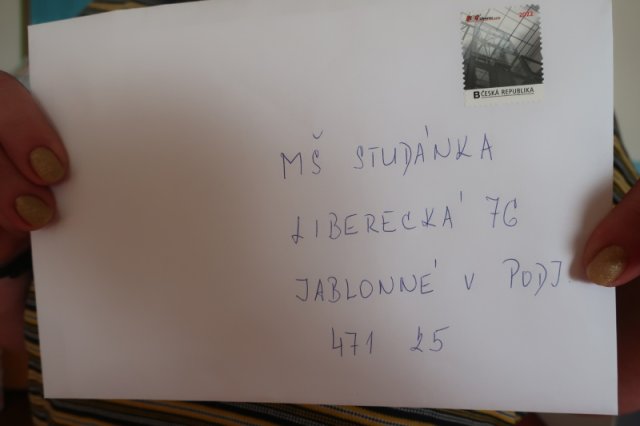 2022
B ČESKÁ REPUBLIKA
MŠ STUDÁNKA
LIBERECKÁ 76
JABLONNÉ V PODJ.
471 25